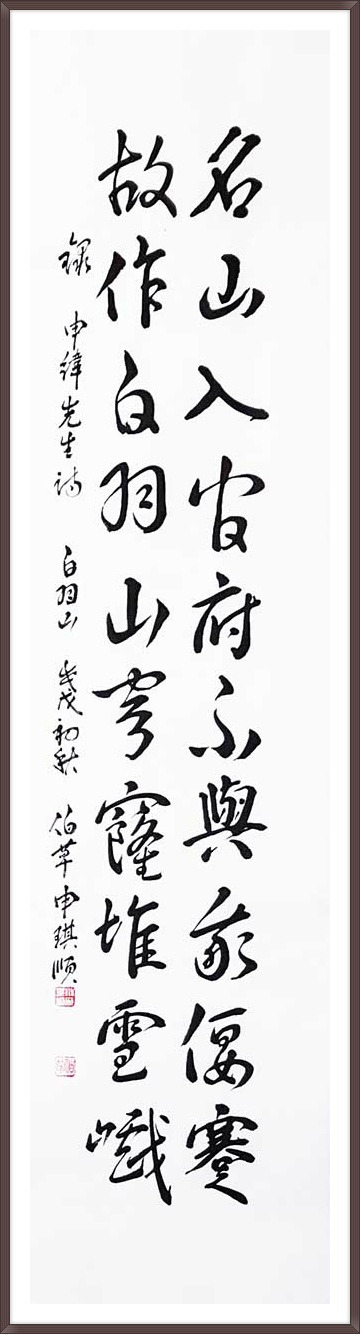 名山入官府不與我偃蹇
故作白羽山穹窿堆雪巘
錄 申緯先生詩 白羽山 戊戌初秋 伯草 申琪順